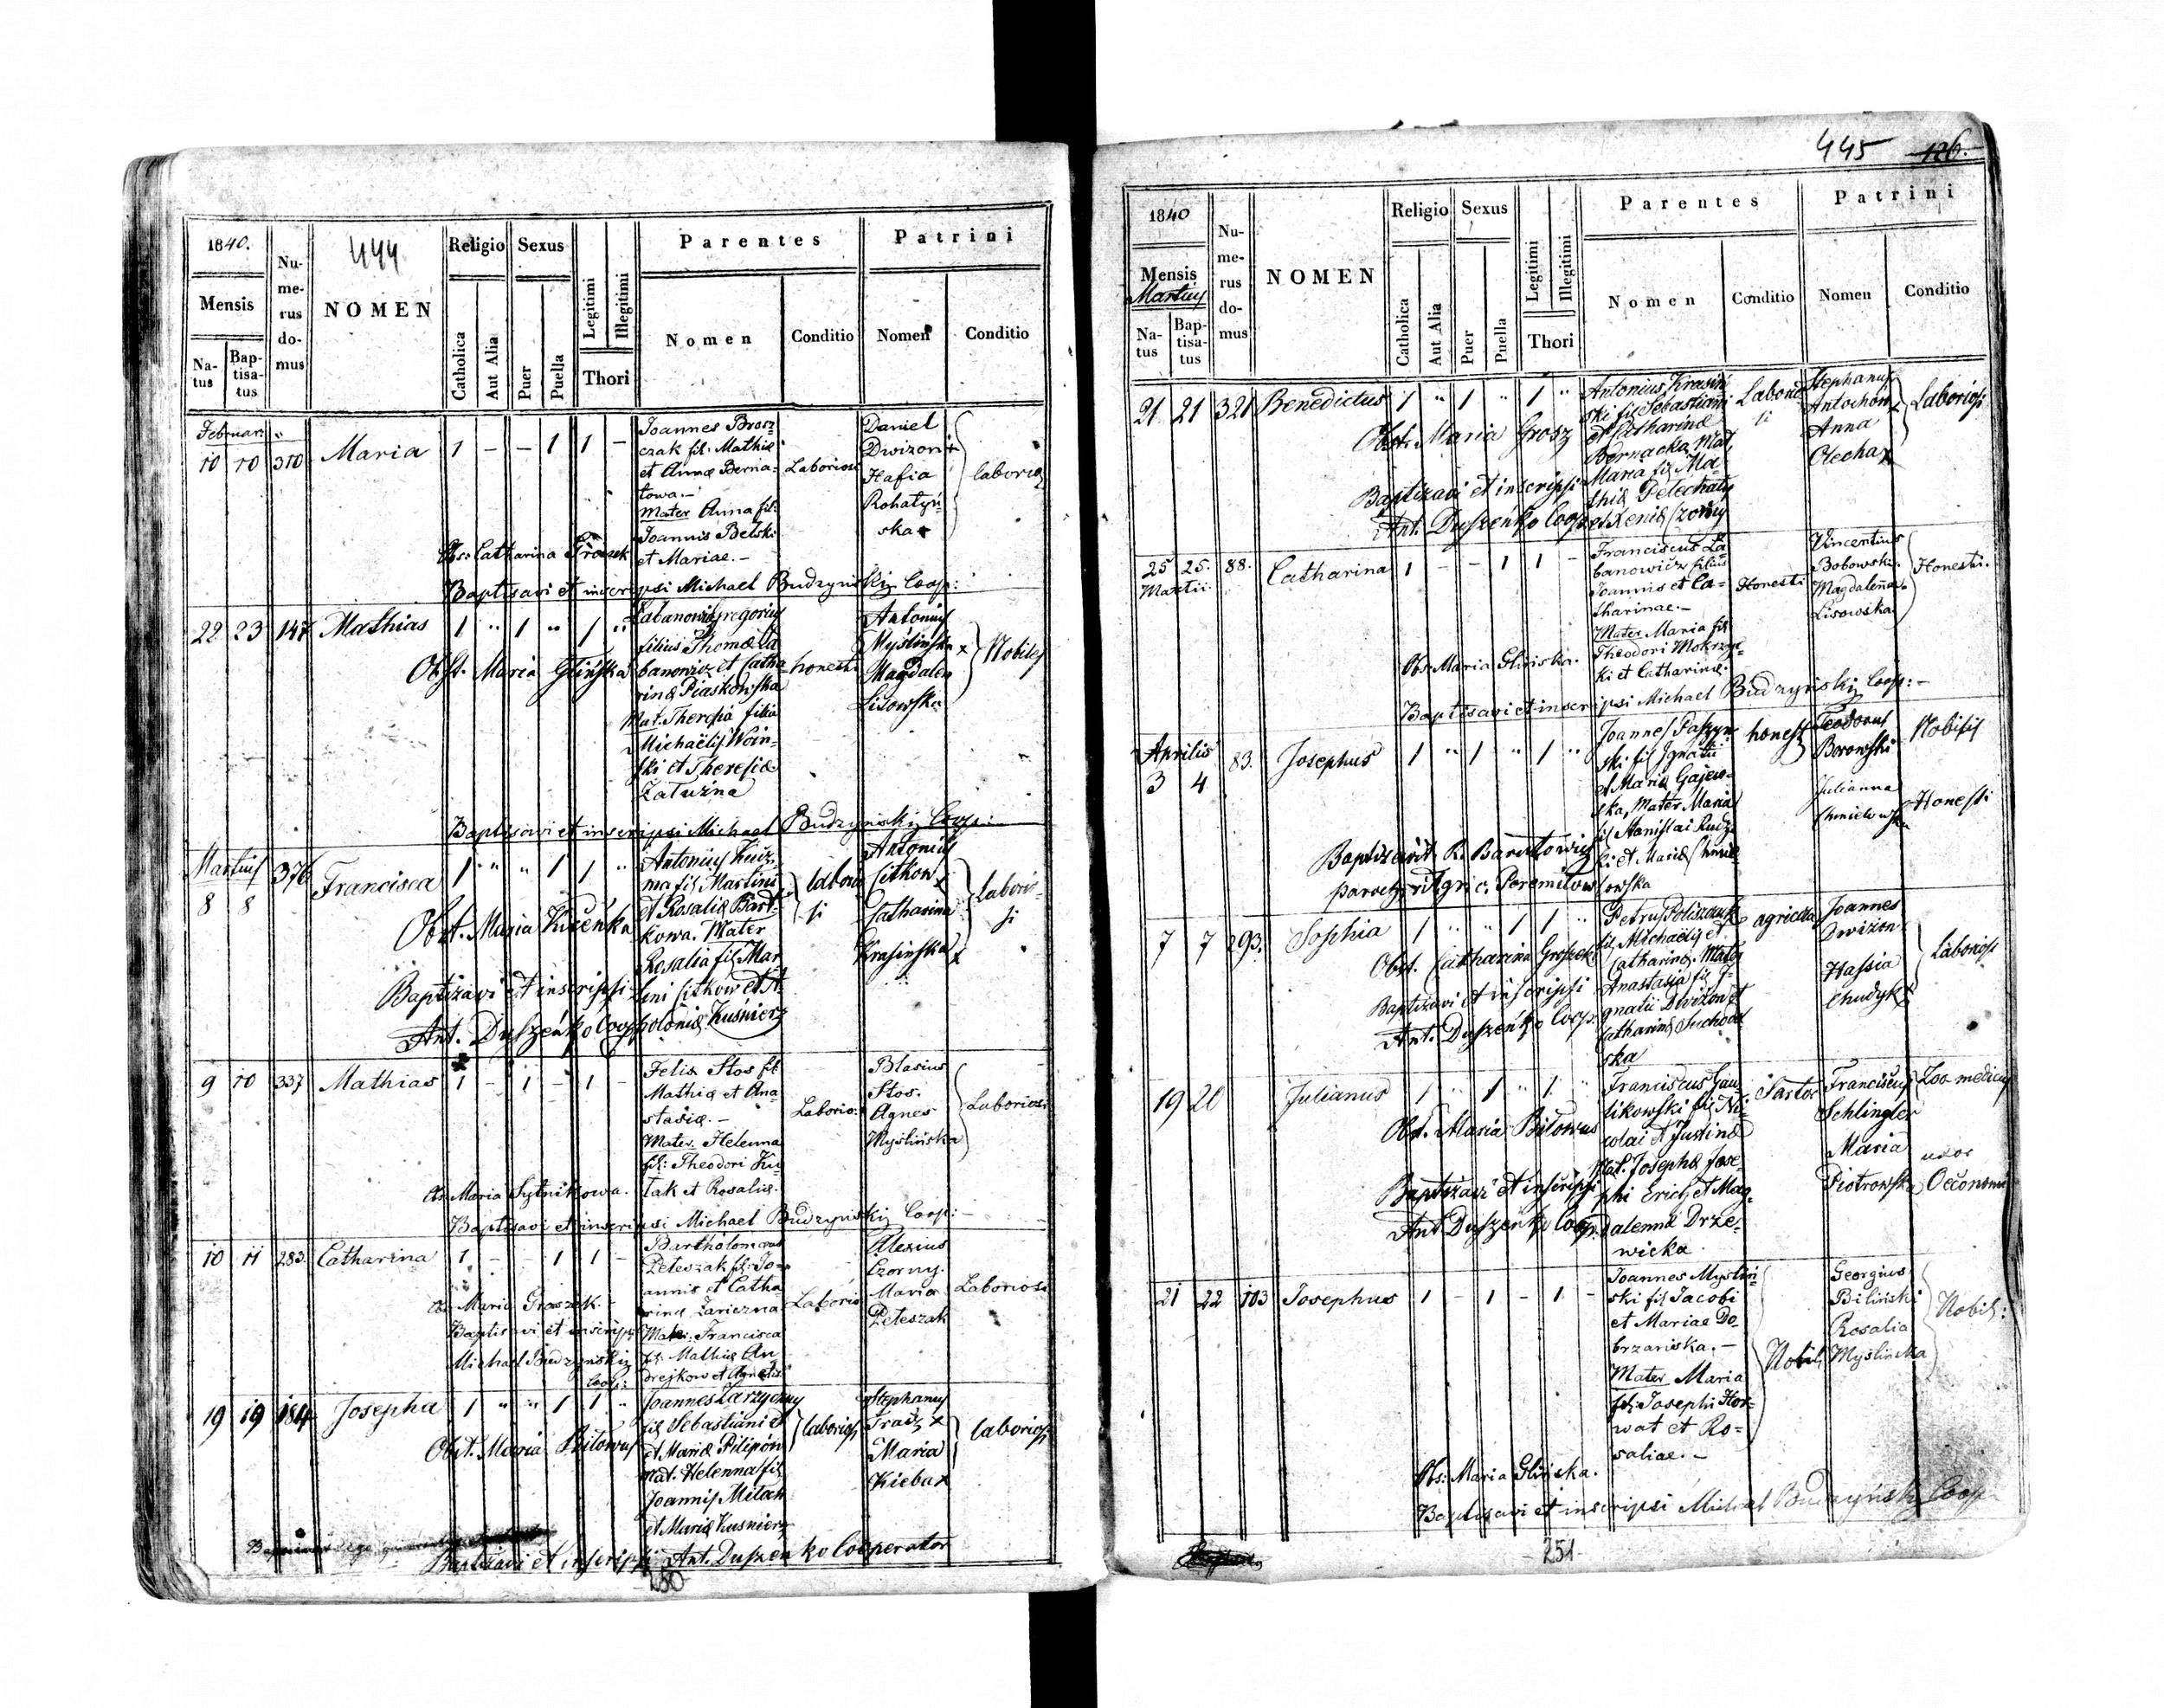 444
1840.
Mensis
Na-
tus
Bap-
tisa-
tus
Nu-
me-
rus
do-
mus
NOMEN
Religio
Catholica
Aut Alia
Sexus
Puer
Puella
Legitimi
Illegitimi
Thori
Parentes
Nomen
Conditio
Patrini
Nomen
Conditio
Februar:
10 10 310 Maria 1 – – 1 1 –
Joannes Brosz=
czak fil: Mathiæ
et Annæ Berna=
towa.–
Mater Anna fil:
Joannis Belski
et Mariae.–
Laboriosi
Daniel
Dwizon +
Hafia
Rohatyń=
ska +
laborio
Obs: Catharina Groszek
Baptisavi et inscripsi Michael Budzynskiz Coop:
22 23 147 Mathias 1 " 1 " 1 "
Łabanowicz Gregorius
filius Thomæ Ła
banowicz et Catha
rinæ Piaskowska
Mat. Theresia filia
Michaëlis Woin=
ski et Theresiæ
Załużna
honesti
Antonius
Myślińska x
Magdalen
Lisowska
Nobiles
Obst. Maria Glińska
Baptisavi et inscripsi Michael Budzynskiz Coop:
Martius
8 8 376 Francisca 1 " " 1 1 "
Antonius Kuź=
ma fil Martini
et Rosaliæ Bart=
kowa. Mater
Rosalia fil Mar
tini Citkow et A
poloniæ Kuśnierz
laborio
si
Antonius
Citkow x
Catharina
Krasińska x
Labori=
si
Obst. Maria Kićeńka
Baptizavi et inscripsi
Ant. Duszeńko Coop
9 10 337 Mathias 1 – 1 – 1 –
Felix Stos fil
Mathiæ et Ana=
stasiæ.–
Mater Helenna
fil: Theodori Ku
łak et Rosaliæ.
Laborio:
Blasius
Stos.
Agnes
Myślińska
Laboriosi
Obs Maria Sytnikowa.
Baptisavi et inscripsi Michael Budzynskiz Coop:–
10 11 283. Catharina 1 – 1 1 –
Bartholomæus
Peteszak fil: Jo=
annis et Catha=
rinæ Zariczna
Mater: Francisca
fil: Mathiæ An
drejkow et Agnetis
Laborio
Alexius
Czorny.
Maria
Peteszak
Laboriosi
Obs Maria Groszek.–
Baptisavi et inscripsi
Michael Budzynskiz
Coop:
19 19 184 Josepha 1 " " 1 1 "
Joannes Zarzyczny
fil Sebastiani
et Mariæ Pilipón
Mat. Helenna fil
Joannis Mitach
et Mariæ Kusnierz
laboriosi
Stephanus
Tracz x
Maria
Kieba x
laboriosi
Obst. Maria Biłowus
Baptizavi et inscripsi Ant. Duszenko Cooperator
250
445 126.
1840
Mensis
Martius
Na-
tus
Bap-
tisa-
tus
Nu-
me-
rus
do-
mus
NOMEN
Religio
Catholica
Aut Alia
Sexus
Puer
Puella
Legitimi
Illegitimi
Thori
Parentes
Nomen
Conditio
Patrini
Nomen
Conditio
21 21 321 Benedictus 1 " 1 " 1 "
Antonius Krasiń
ski fil Sebastiani
et Catharinæ
Bernacka, Mat.
Maria fil Ma=
thiæ Petechaty
et Xeniæ Czorny
Laborio
si
Stephanus
Antochon x
Anna
Olecha x
Laboriosi
Obst. Maria Grosz
Baptizavi et inscripsi
Ant. Duszeńko Coop
25 25. 88. Catharina 1 – – 1 1 –
Martii
Franciscus Ła=
banowicz filius
Joannis et Ca=
tharinae.–
Mater Maria fil
Theodori Mokrzyc=
ki et Catharinæ.
Honesti
Vincentius
Bobowski.
Magdalena
Lisowska.
Honesti.
Obs: Maria Glińska.
Baptisavi et inscripsi Michael Budzynskiz Coop:–
Aprilis
3 4 83. Josephus 1 " 1 " 1 "
Joannes Paszyn
ski fil Ignatii
et Mariæ Gajew=
ska, Mater Maria
fil Stanislai Rudz
ki et Mariæ Chmie
lowska
honest
Teodorus
Borowski
Julianna
Chmielowska
Nobilis
Honesti
Baptizavit R. Baratowicz
parochus rit. gr. c. Poremitow
7 7 293. Sophia 1 " " 1 1 "
Petrus Poliszczuk
fil Michaëlis et
Catharinæ. Mater
Anastasia fil I=
gnatii Dwizon et
Catharinæ Suchodol
ska
agricola
Joannes
Dwizon x
Hassia
Chudyk x
Laboriosi
Obst. Catharina Groszek
Baptizavi et inscripsi
Ant. Duszeńko Coop.
19 20 Julianus 1 " 1 " 1 "
Franciscus Gaw
likowski fil Ni=
colai et Justinæ
Mat. Josepha Jose=
phi Erich et Mag=
dalennæ Drze=
wicka
Sartor
Franciscus
Schlingler
Maria
Piotrowska
Zoo-medicus
uxor
Oeconomi
Obst. Maria Biłowus
Baptizavi et inscripsi
Ant Duszeńko Coop.
21 22 103 Josephus 1 – 1 – 1 –
Joannes Myśliń=
ski fil Jacobi
et Mariae Do=
brzańska.–
Mater Maria
fil: Josephi Hor=
wat et Ro=
saliae.–
Nobil
Georgius
Biliński
Rosalia
Myślińska
Nobil:
Obs: Maria Glińska.
Baptisavi et inscripsi Michael Budzyński Coop
251